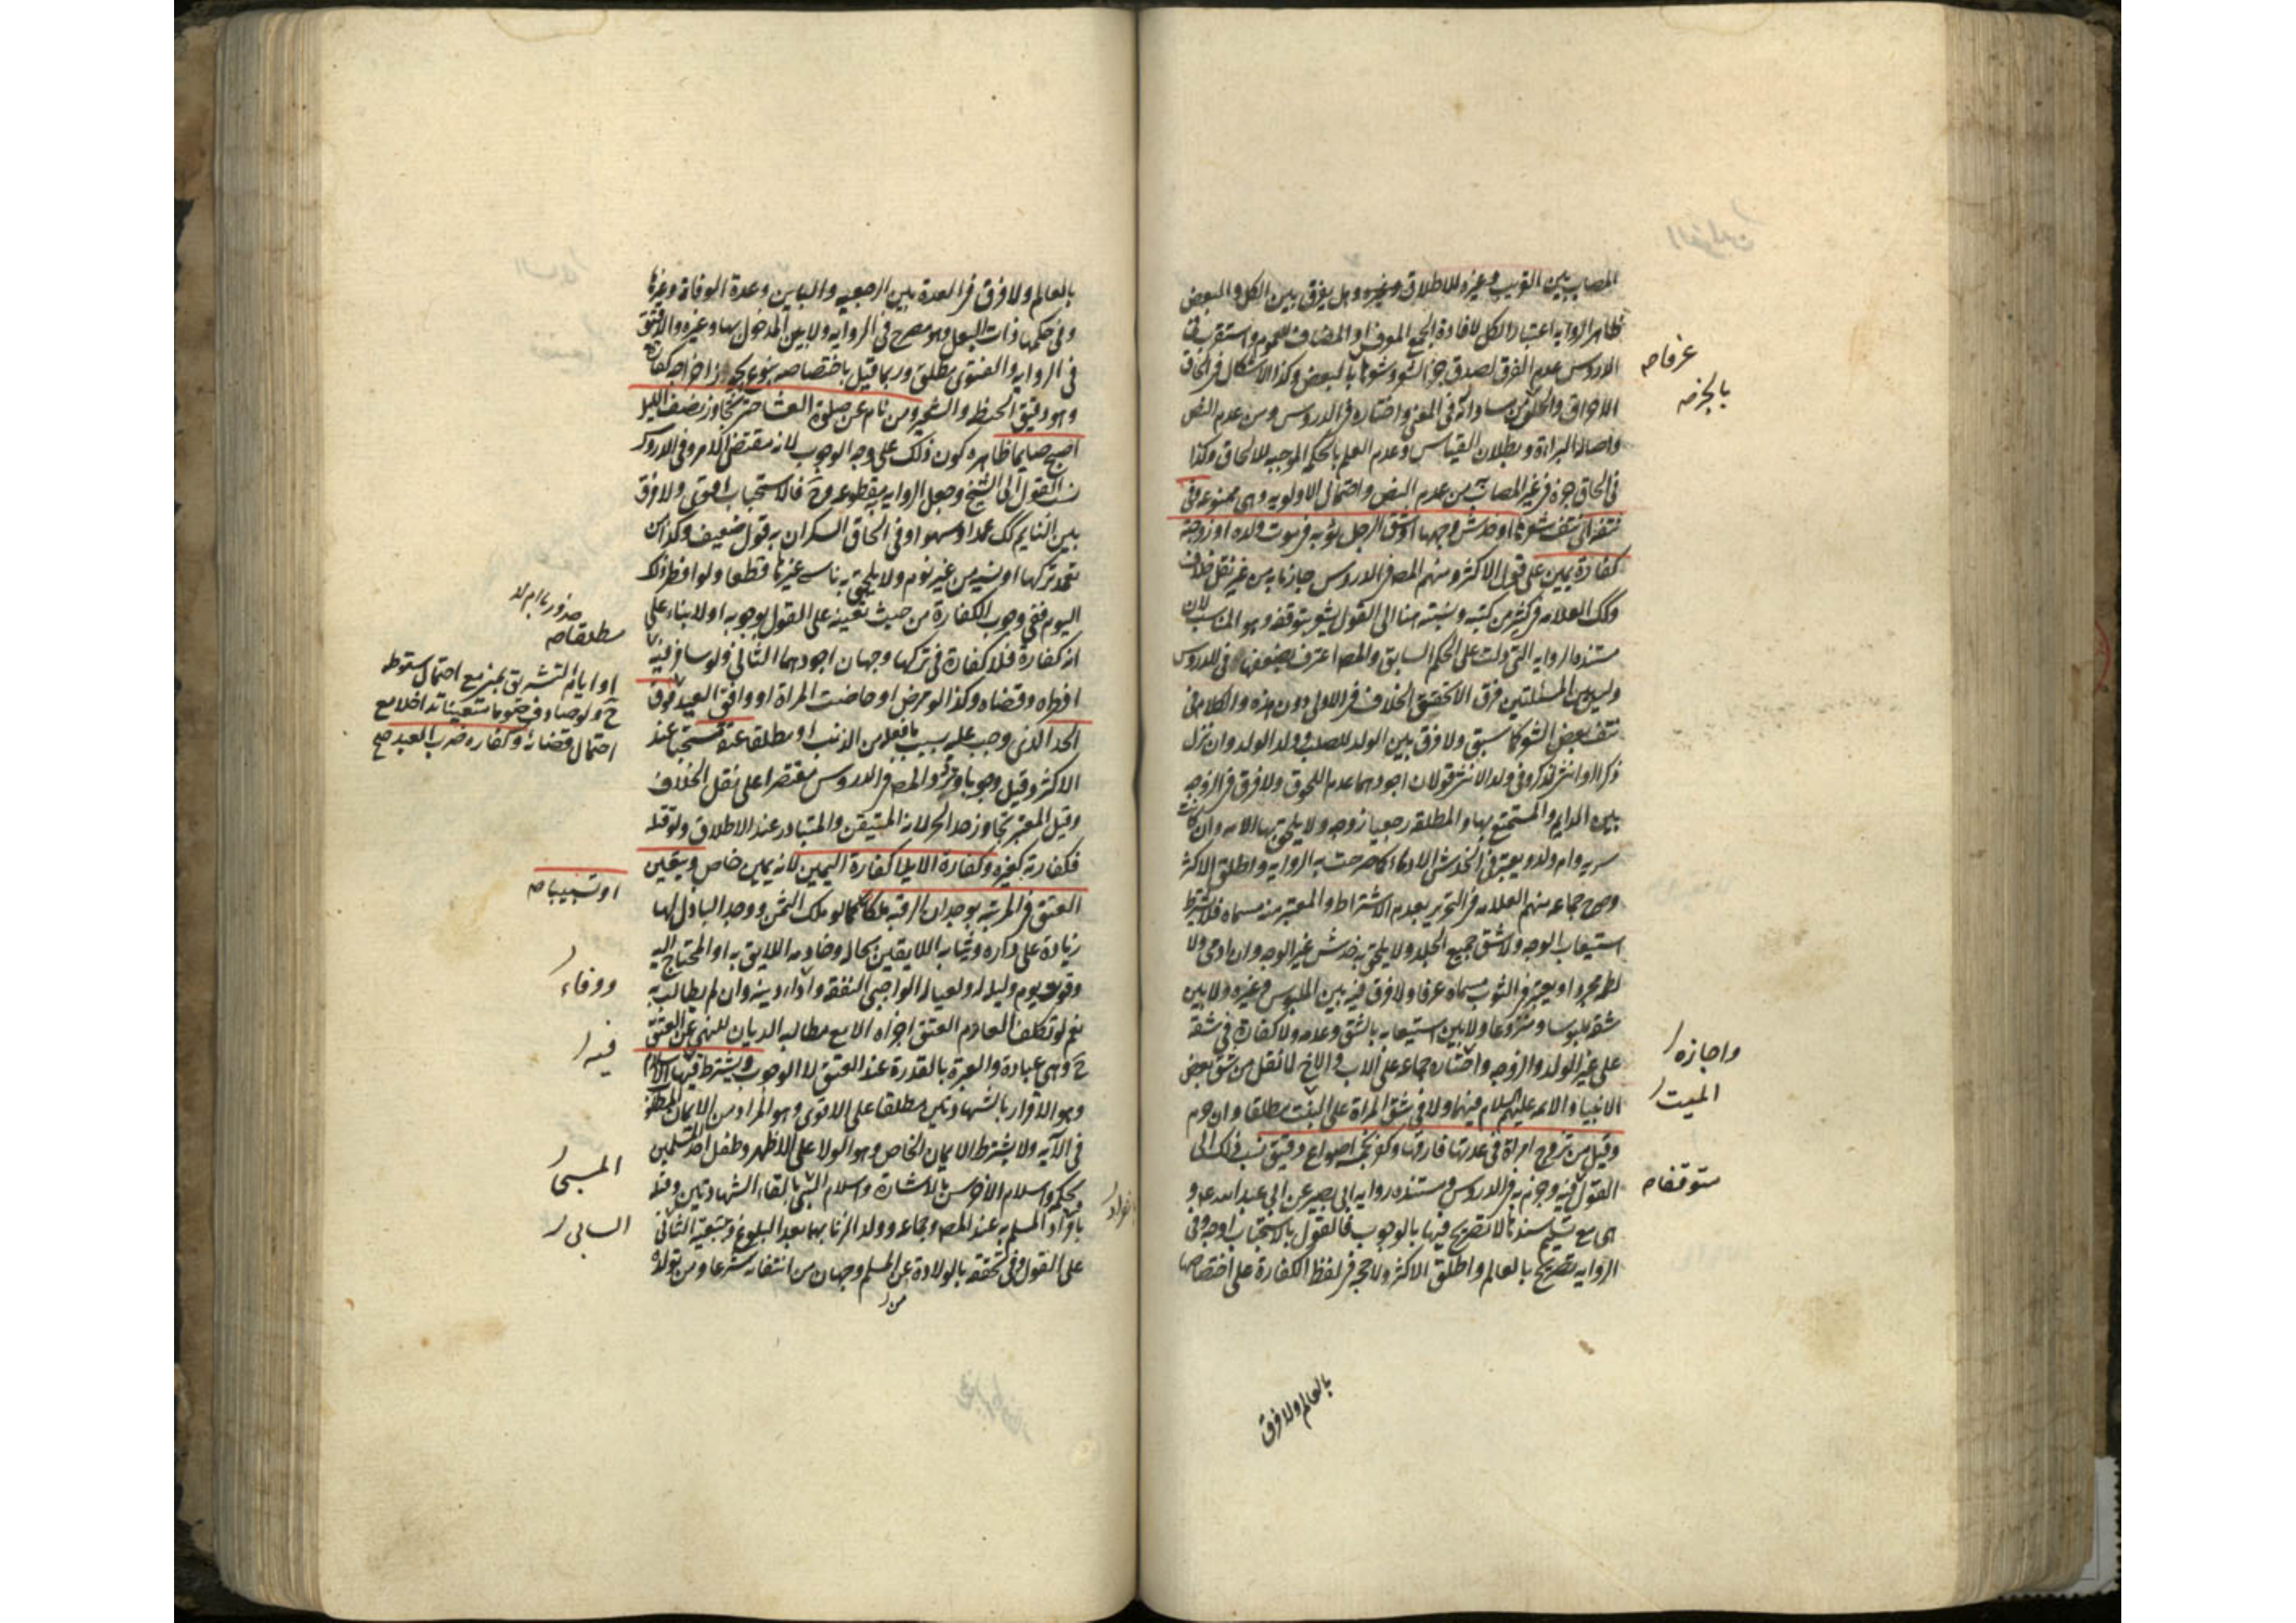 المصاب بين القريب وغيره للاطلاق وهل يفرق بين الكل والبعض
ظاهر الروايه اعتبار الكل لافادة الجمع المعرف او المضاف العموم واستقرب في
الدروس عدم الفرق لصدق جز الشعر وشعرها بالبعض وكذا الاشكال في الحاق
الاحراق والحلق من مساواته في المعنى واختاره في الدروس ومن عدم النص
واصالة البراءة وبطلان القياس وعدم العلم بالحكم الموجبه للالحاق وكذا
في الحاق جزه في غير المصاب من عدم النص واحتمال الاولويه وهى ممنوعه وفى
نتفه اى نتف شعرها او خدش وجهها او شق الرجل ثوبه في موت ولده او زوجته
كفارة يمين على قول الاكثر ومنهم المص في الدروس جازما به من غير نقل خلاف
وكك العلامه في كثير من كتبه ونسبته هنا الى القول يشعر بتوقفه وهو المناسب لان
مستنده الروايه التى دلت على الحكم السابق والمص اعترف بضعفها في الدروس
وليس بين المسئلتين فرق الا تحقق الخلاف في الاولى دون هذه والكلام فى
نتف بعض الشعر كما سبق ولا فرق بين الولد للصلب وولد الولد وان نزل
ذكرا او انثى لذكر وفى ولد الانثى قولان اجودهما عدم اللحوق ولا فرق في الزوجه
بين الدايم والمستمتع بها والمطلقه رجعيا زوجه ولا يلحق بها الامه وان كانت
سريه وام ولد ويعتبر فى الخدش الادماء كما صرحت به الروايه واطلق الاكثر
وصرح جماعه منهم العلامه في التحرير بعدم الاشتراط والمعتبر منه مسماه فلا يشترط
استيعاب الوجه ولا شق جميع الجلد ولا يلحق به خدش غير الوجه وان ادمى ولا
لطمه مجردا ويعتبر في الثوب مسماه عرفا ولا فرق فيه بين الملبوس وغيره ولا بين
شقه ملبوسا ومنزوعا ولا بين استيعابه بالشق وعدمه ولا كفارة في شقه
على غير الولد والزوجه واختاره جماعه على الاب والاخ لما نقل من شق بعض
الانبياء والائمه عليهم السلام فيهما ولا في شق المراة على الميت مطلقا وان حرم
وقيل من تزوج امراة فى عدتها فارقها وكفر بخمسه اصواع دقيق نسب ذلك الى
القول فيه وجزم به في الدروس ومستنده روايه ابى بصير عن ابى عبد الله ع و
هى مع تسليم سندها لا تصريح فيها بالوجوب فالقول بالاستحباب اوجه وفى
الروايه تصريح بالعالم واطلق الاكثر ولا حجر في لفظ الكفارة على اختصاصها
عرفا صح
بالجز صح
واجازه
الميت
متوقفا صح
بالعالم ولا فرق
بالعالم ولا فرق في العدة بين الرجعيه والباين وعدة الوفاة وغيرها
وفى حكمها ذات البعل وهو مصرح فى الروايه ولا بين المدخول بها وغيره والدقيق
فى الروايه والفتوى مطلق وربما قيل باختصاصه بنوع يجوز اخراجه كفارة
وهو دقيق الحنطه والشعير ومن نام عن صلوة العشا حتى تجاوز نصف الليل
اصبح صايما ظاهره كون ذلك على وجه الوجوب لانه مقتضى الامر وفى الدروس
نسب القول الى الشيخ وجعل الروايه مقطوعه وح فالاستحباب اقوى ولا فرق
بين النايم كك عمدا وسهوا وفى الحاق السكران به قول ضعيف وكذا من
تعمد تركها او نسيه من غير نوم ولا يلحق به ناسى غيرها قطعا ولو افطر ذلك
اليوم ففى وجوب الكفارة من حيث تعينه على القول بوجوبه او لا بناء على
انه كفارة فلا كفارة فى تركها وجهان اجودهما الثانى ولو سافر فيه
افطره وقضاه وكذا لو مرض او حاضت المراة او وافق العيد فوق
الحد الذى وجب عليه بسبب ما فعله من الذنب او مطلقا عتقه مستحبا عند
الاكثر وقيل وجوبا وتردد المص في الدروس مقتصرا على نقل الخلاف
وقيل المعتبر تجاوز حد الحر لانه المتيقن والمتبادر عند الاطلاق ولو قتله
فكفارته كغيره وكفارة الايلا كفارة اليمين لانه يمين خاص ويتعين
العتق في المرتبه بوجدان الرقبه ملكا كما لو ملك الثمن ووجد الباذل لها
زيادة على داره وثيابه اللايقين بحاله وخادمه اللايق به او المحتاج اليه
وقوت يوم وليله له ولعياله الواجبى النفقه واداء دينه وان لم يطالب به
نعم لو تكلف العادم العتق اجزاه الا مع مطالبه الديان للنهى عن العتق
ح وهى عبادة والعبرة بالقدرة عند العتق لا الوجوب ويشترط فيها الاسلام
وهو الاقرار بالشهادتين مطلقا على الاقوى وهو المراد من الايمان المطلوب
فى الآيه ولا يشترط الايمان الخاص وهو الولا على الاظهر وطفل احد المسلمين
بحكمه واسلام الاخرس بالاشارة واسلام المسبى بالقاء الشهادتين وقبله
بانفراد المسلم به عند المص وجماعه وولد الزنا بهما بعد البلوغ وبتبعيه السابى
على القول وفى تحققه بالولادة عن المسلم وجهان من انتفائه شرعا ومن تولده
منه
مطلقا صح
او ايام التشريق تخير مع احتمال سقوطه
ح ولو صادف صوما متعينا تداخلا مع
احتمال قضائه وكفاره ضرب العبد صح
او تسبيبا صح
ووفاء
فيه
المسبى
السابى
انفراد